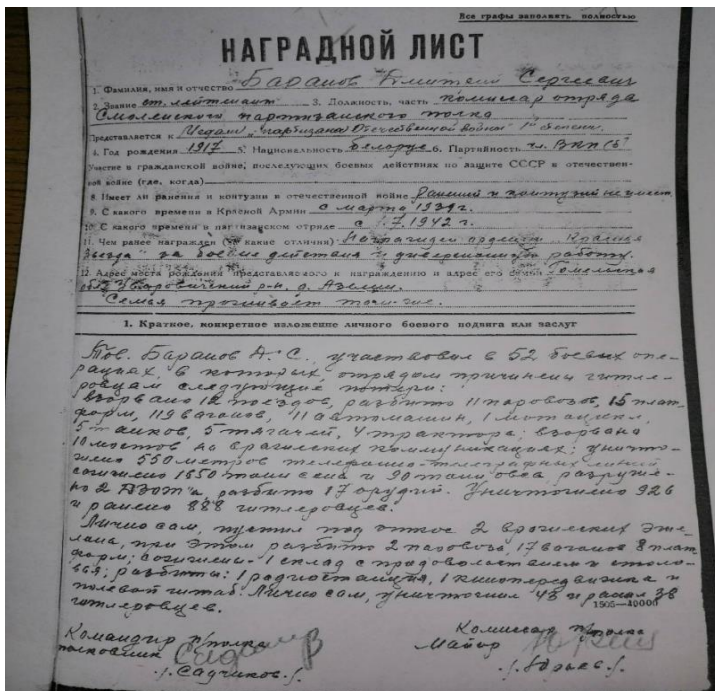 Все графы заполнять полностью
НАГРАДНОЙ ЛИСТ
1. Фамилия, имя и отчество Баранов Дмитрий Сергеевич
2. Звание ст. лейтенант 3. Должность, часть комиссар отряда
Смоленского партизанского полка
Представляется к Медали „Партизана Отечественной войны" 1й степени.
4. Год рождения 1917 5. Национальность белорус 6. Партийность чл. ВКП(б)
Участие в гражданской войне, последующих боевых действиях по защите СССР и отечествен-
ной войне (где, когда)
8. Имеет ли ранения и контузии в отечественной войне ранений и контузий не имеет
9. С какого времени в Красной Армии с марта 1939г.
10. С какого времени в партизанском отряде с 1.7.1942 г.
11. Чем ранее награжден (за какие отличия) Награжден орденом „Красная
Звезда" за боевые действия и диверсионную работу.
12. Адрес места рождения представляемого к награждению и адрес его семьи Гомельская
обл. Уваровичский р-н. д. Азелин.
Семья проживает там-же.
1. Краткое, конкретное изложение личного боевого подвига или заслуг
Тов. Баранов Д. С. участвовал в 52 боевых опе-
рациях, в которых отрядом причинены гитле-
ровцам следующие потери:
взорвано 12 поездов, разбито 11 паровозов, 15 плат-
форм, 119 вагонов, 11 автомашин, 1 мотоцикл,
5 танков, 5 тягачей, 4 трактора; взорвано
10 мостов на вражеских коммуникациях; уничто-
жено 550 метров телефонно-телеграфных линий
сожжено 1650 тонн сена и 90 тонн овса разруше-
но 2 ДЗОТа, разбито 17 орудий. Уничтожено 926
и ранено 888 гитлеровцев.
Лично сам, пустил под откос 2 вражеских эше-
лона, при этом разбито 2 паровоза, 17 вагонов 8 плат-
форм; сожжены- 1 склад с продовольствием и столо-
вая; разбиты: 1 радиостанция, 1 кинопередвижка и
полевой штаб. Лично сам, уничтожил 43 и ранил 38
гитлеровцев.
1505—40000
Командир п/полка
полковник
/.Садчиков./.
Комиссар п/полка
Майор
/.Юрьев./.